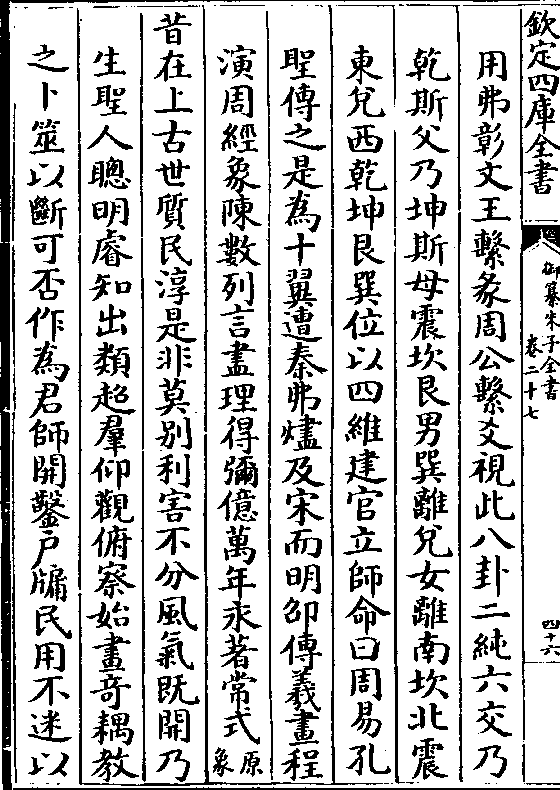 欽定四庫全書
御纂朱子全書
卷二十七
四十六
用弗彰文王繫彖周公繫爻視此八卦二純六交乃
乾斯父乃坤斯母震坎艮男巽離兌女離南坎北震
東兌西乾坤艮巽位以四維建官立師命曰周易孔
聖傳之是為十翼遭秦弗燼及宋而明邵傳羲畫程
演周經象陳數列言盡理得彌億萬年永著常式原象
昔在上古世質民淳是非莫別利害不分風氣既開乃
生聖人聰明睿知出類超羣仰觀俯察始畫奇耦教
之卜筮以斷可否作為君師開鑿戶牖民用不迷以